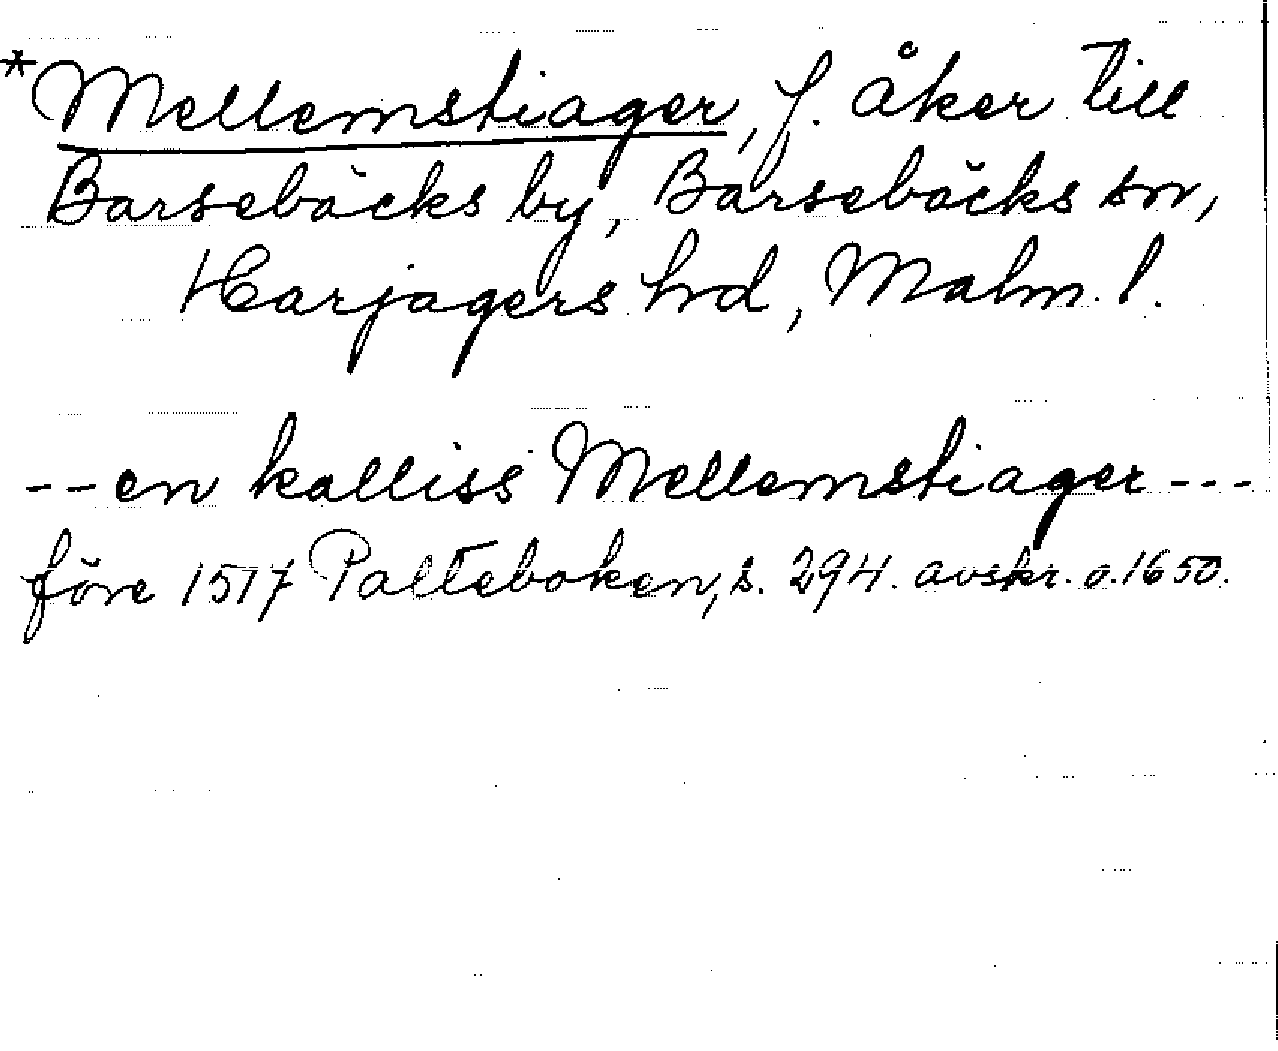 *Mellemstiager, f. åker till
Barsebäcks by, Barsebäcks sn,
Harjagers hd, Malm. l.
--en kalliss Mellemstiager---
före 1517 Palteboken, s. 294. avskr. o. 1650.